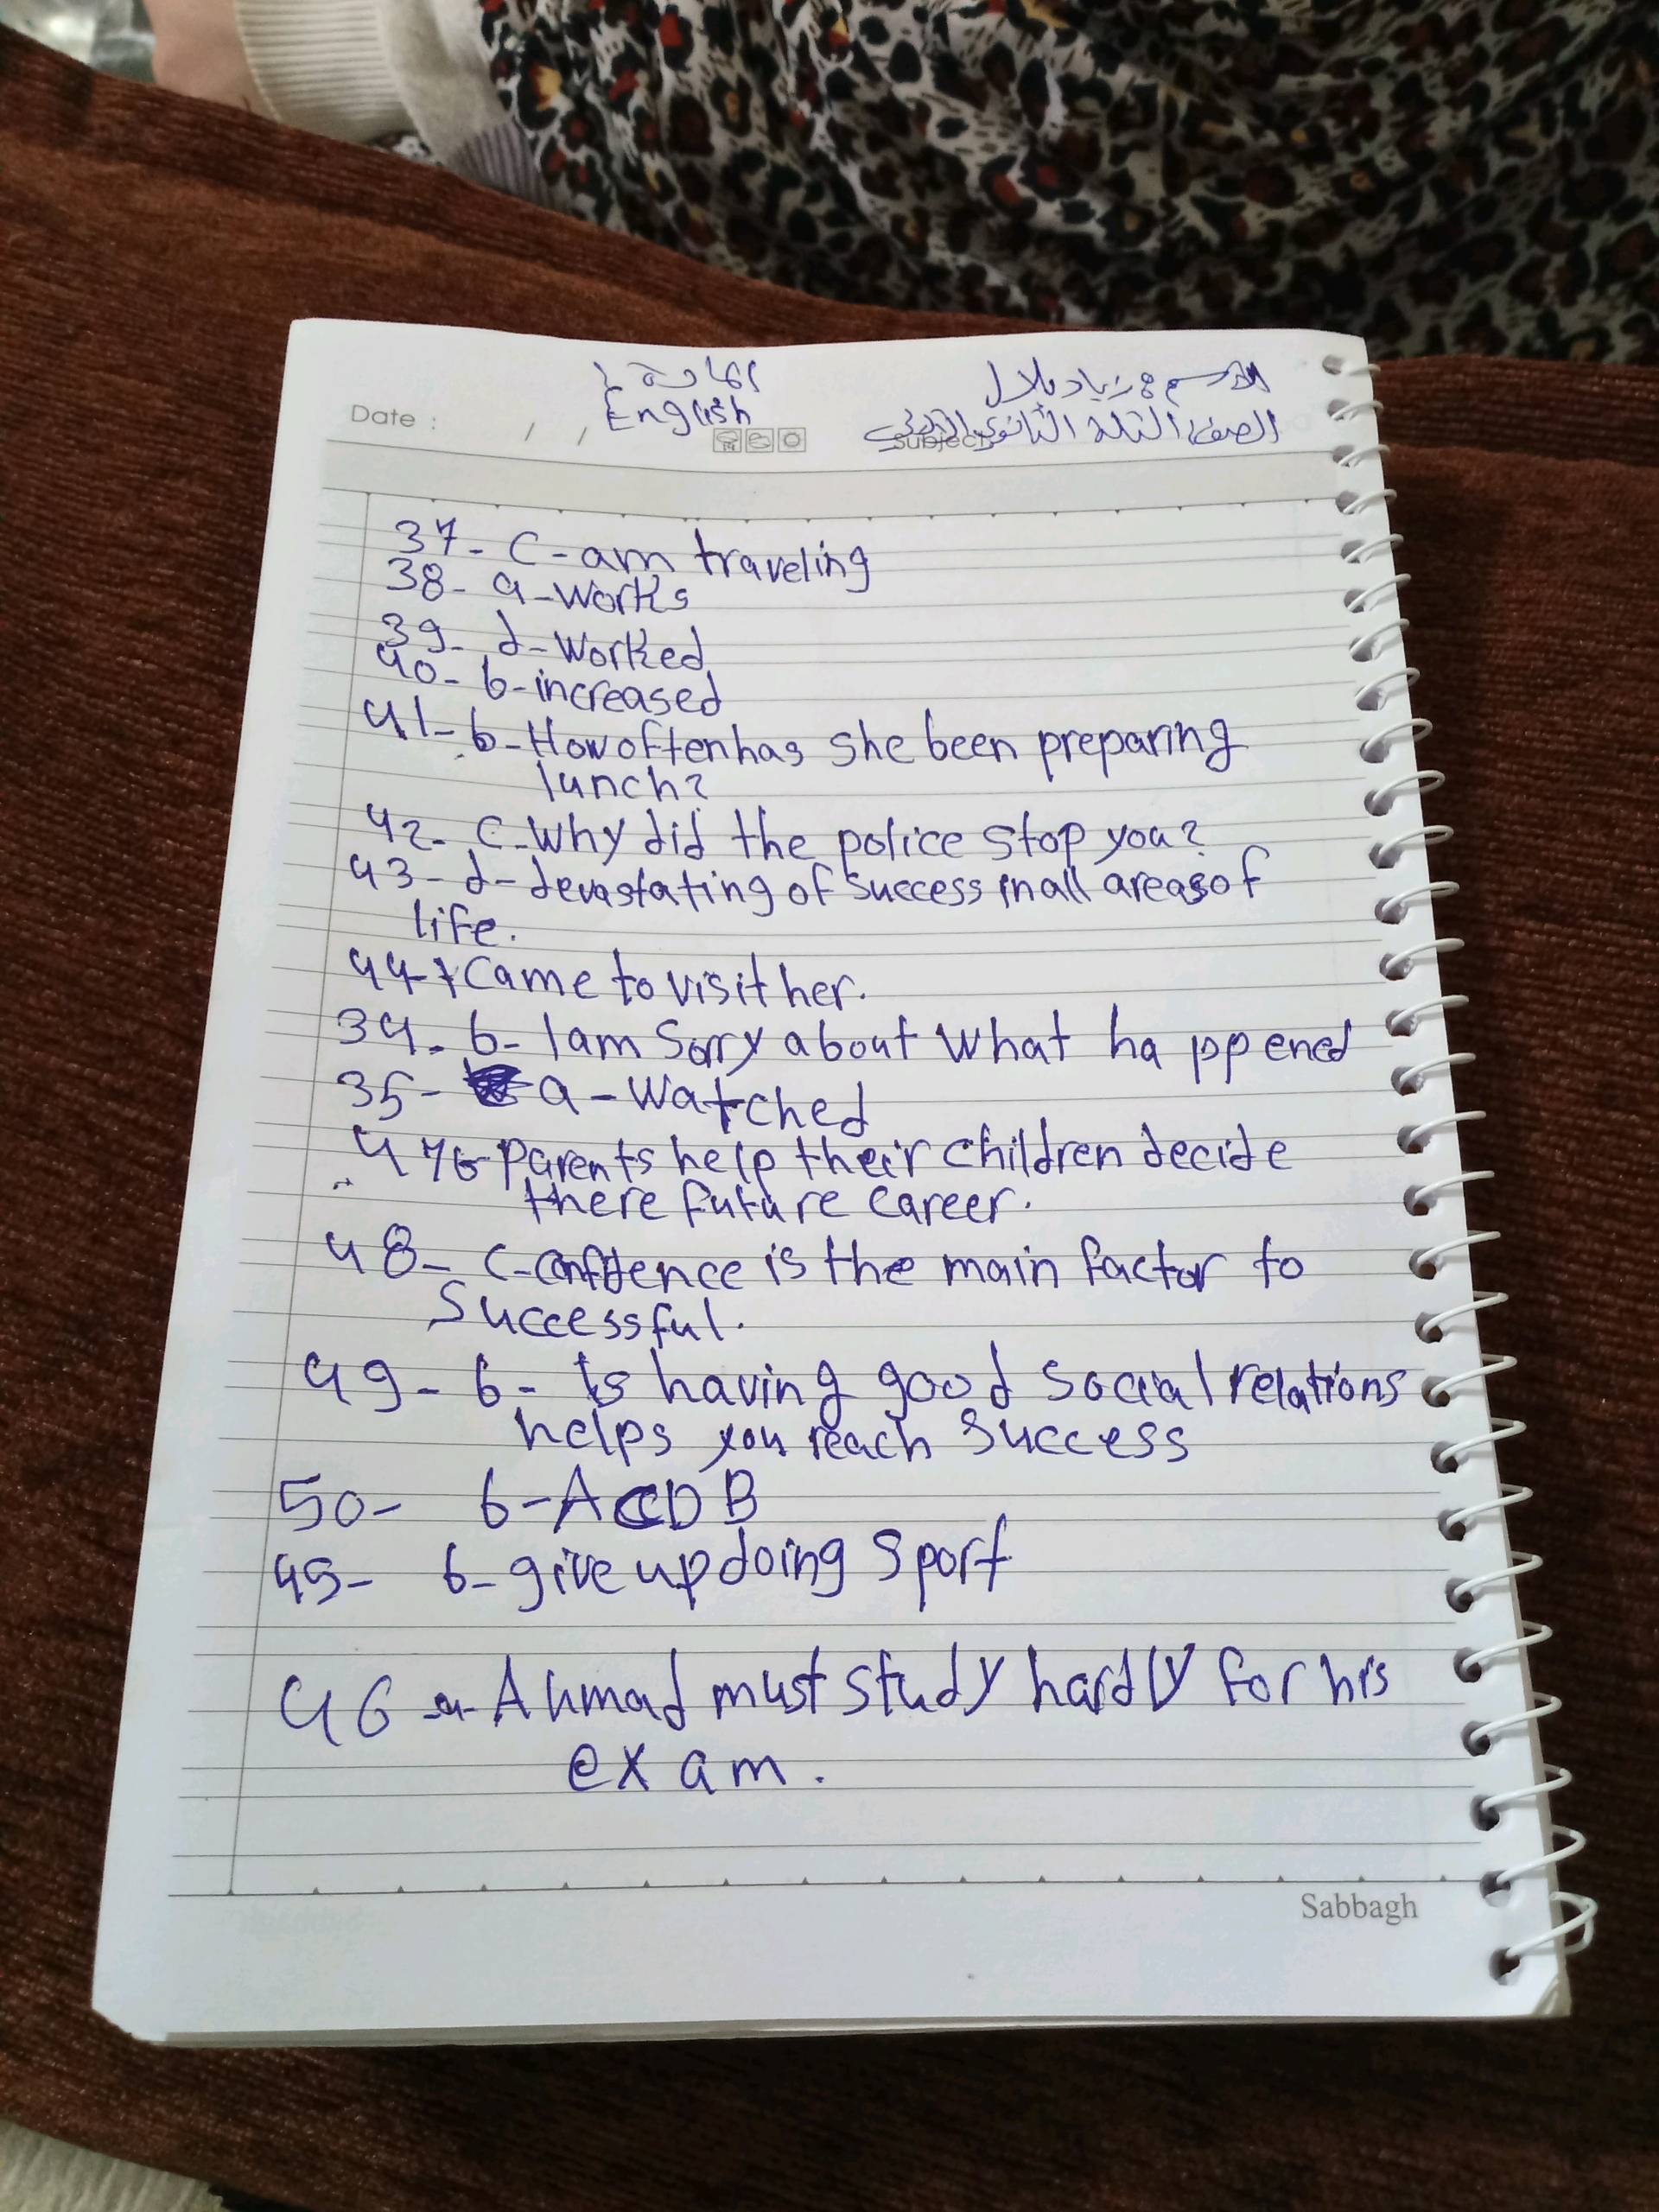 الاسم: زياد بلال
المادة:
الصف: الثالث الثانوي الأدبي
English
Date : / /
Subject:
37- C-am traveling
38- a-works
39- d-worked
40- b-increased
41- b-How often has she been preparing
lunch?
42- C-Why did the police stop you?
43- d-devastating of success in all areas of
life.
44- Came to visit her.
34- b- I am Sorry about what happened
35- a-watched
47 b-Parents help their children decide
there future career.
48- C-Confidence is the main factor to
Successful.
49- b- Is having good social relations
helps you reach Success
50- b-ACDB
45- b-give up doing sport
46 a-Ahmad must study hardly for his
exam.
Sabbagh